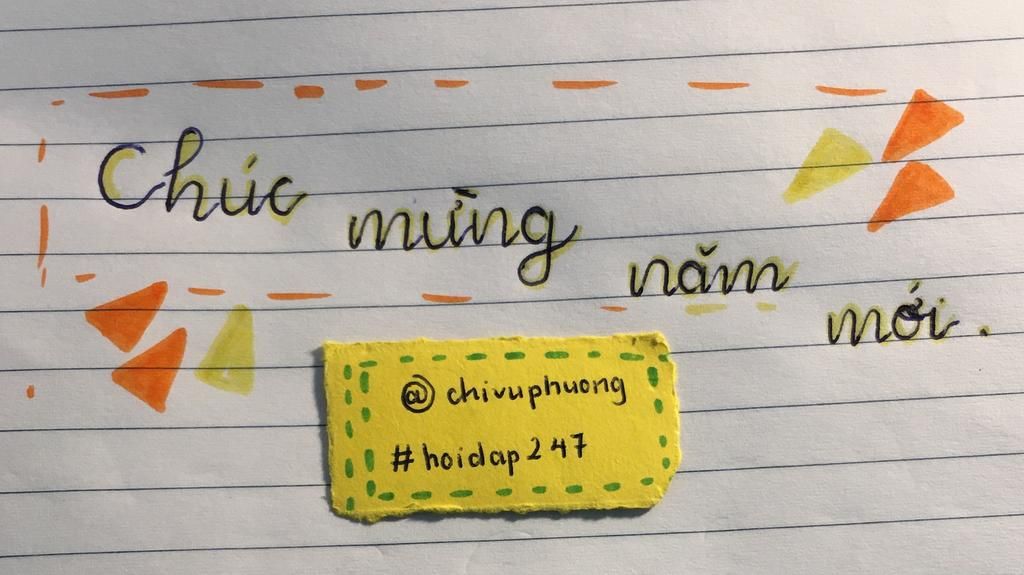 Chúc mừng năm mới.
@chivuphuong
#hoidap247